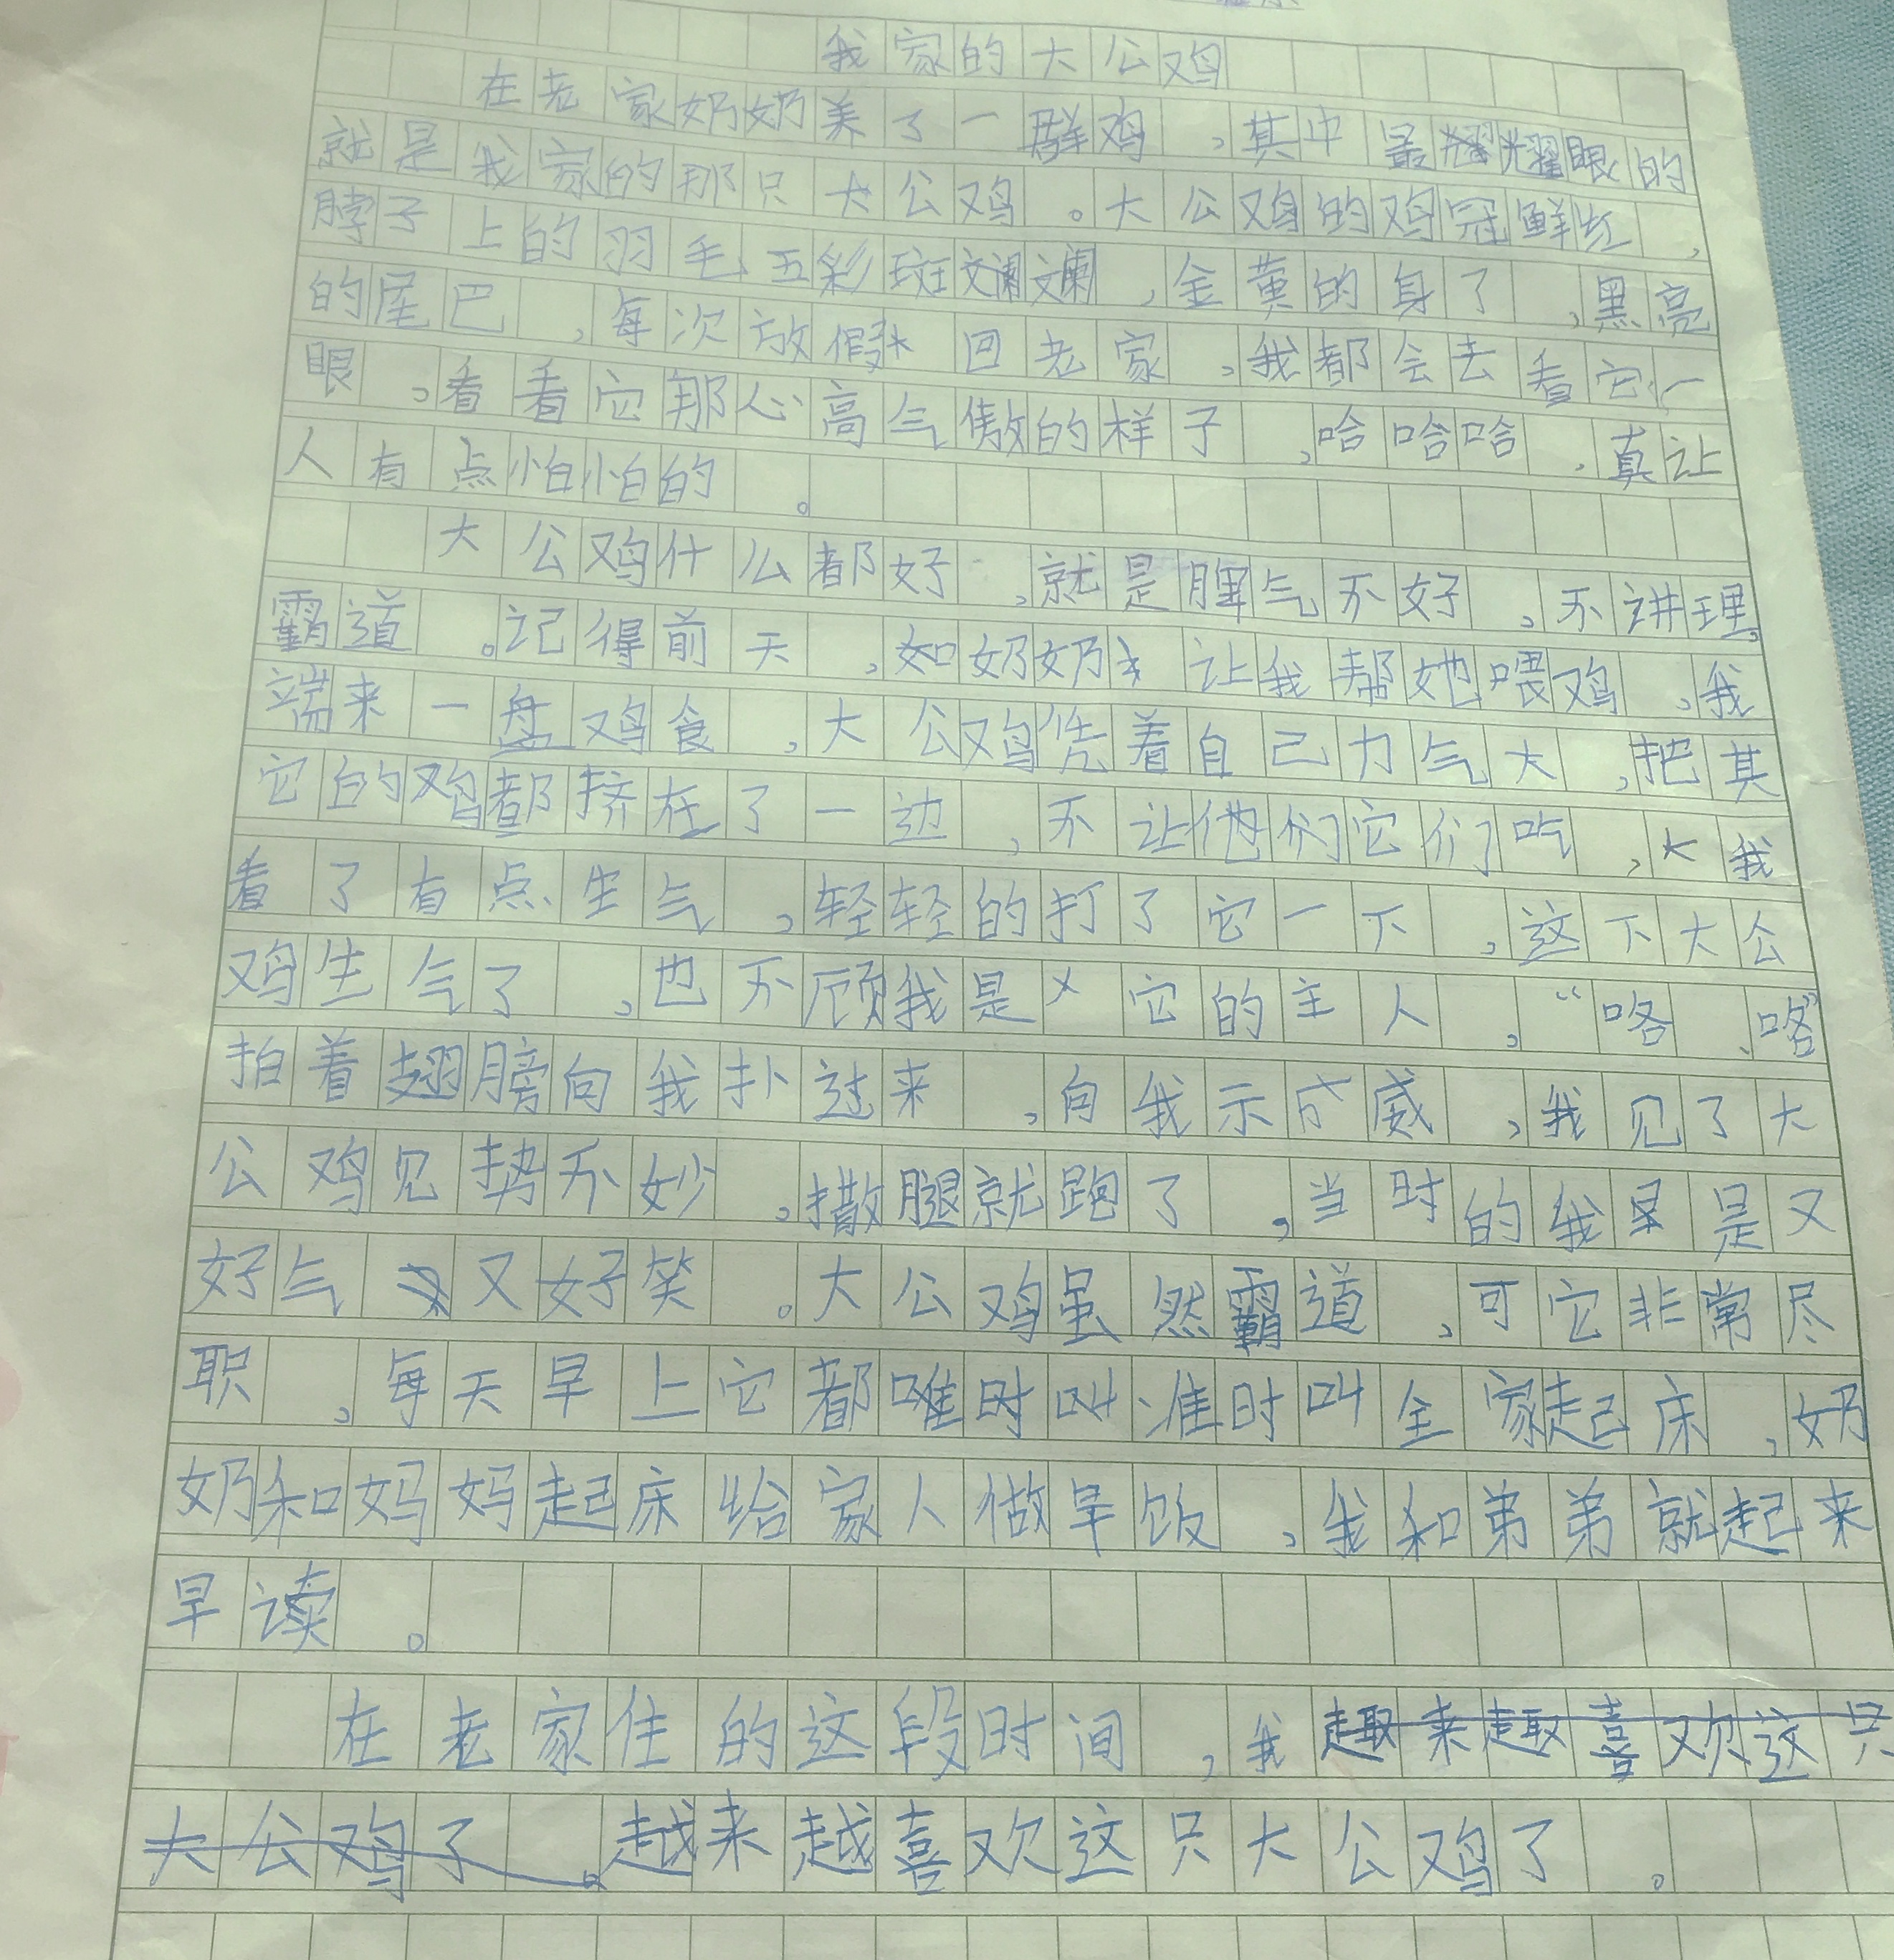 我家的大公鸡
在老家奶奶养了一群鸡，其中最耀眼的
就是我家的那只大公鸡。大公鸡的鸡冠鲜红，
脖子上的羽毛五彩斑斓，金黄的身了，黑亮
的尾巴，每次放假回老家，我都会去看它一
眼，看看它那心高气傲的样子，哈哈哈，真让
人有点怕怕的。
大公鸡什么都好，就是脾气不好，不讲理，
霸道。记得前天，奶奶让我帮她喂鸡，我
端来一盘鸡食，大公鸡凭着自己力气大，把其
它的鸡都挤在了一边，不让它们吃，我
看了有点生气，轻轻的打了它一下，这下大公
鸡生气了，也不顾我是它的主人，“咯、咯”
拍着翅膀向我扑过来，向我示威，我见了大
公鸡见势不妙，撒腿就跑了，当时的我是又
好气又好笑。大公鸡虽然霸道，可它非常尽
职，每天早上它都准时叫全家起床，奶
奶和妈妈起床给家人做早饭，我和弟弟就起来
早读。
在老家住的这段时间，我趣来趣喜欢这只
大公鸡了。越来越喜欢这只大公鸡了。